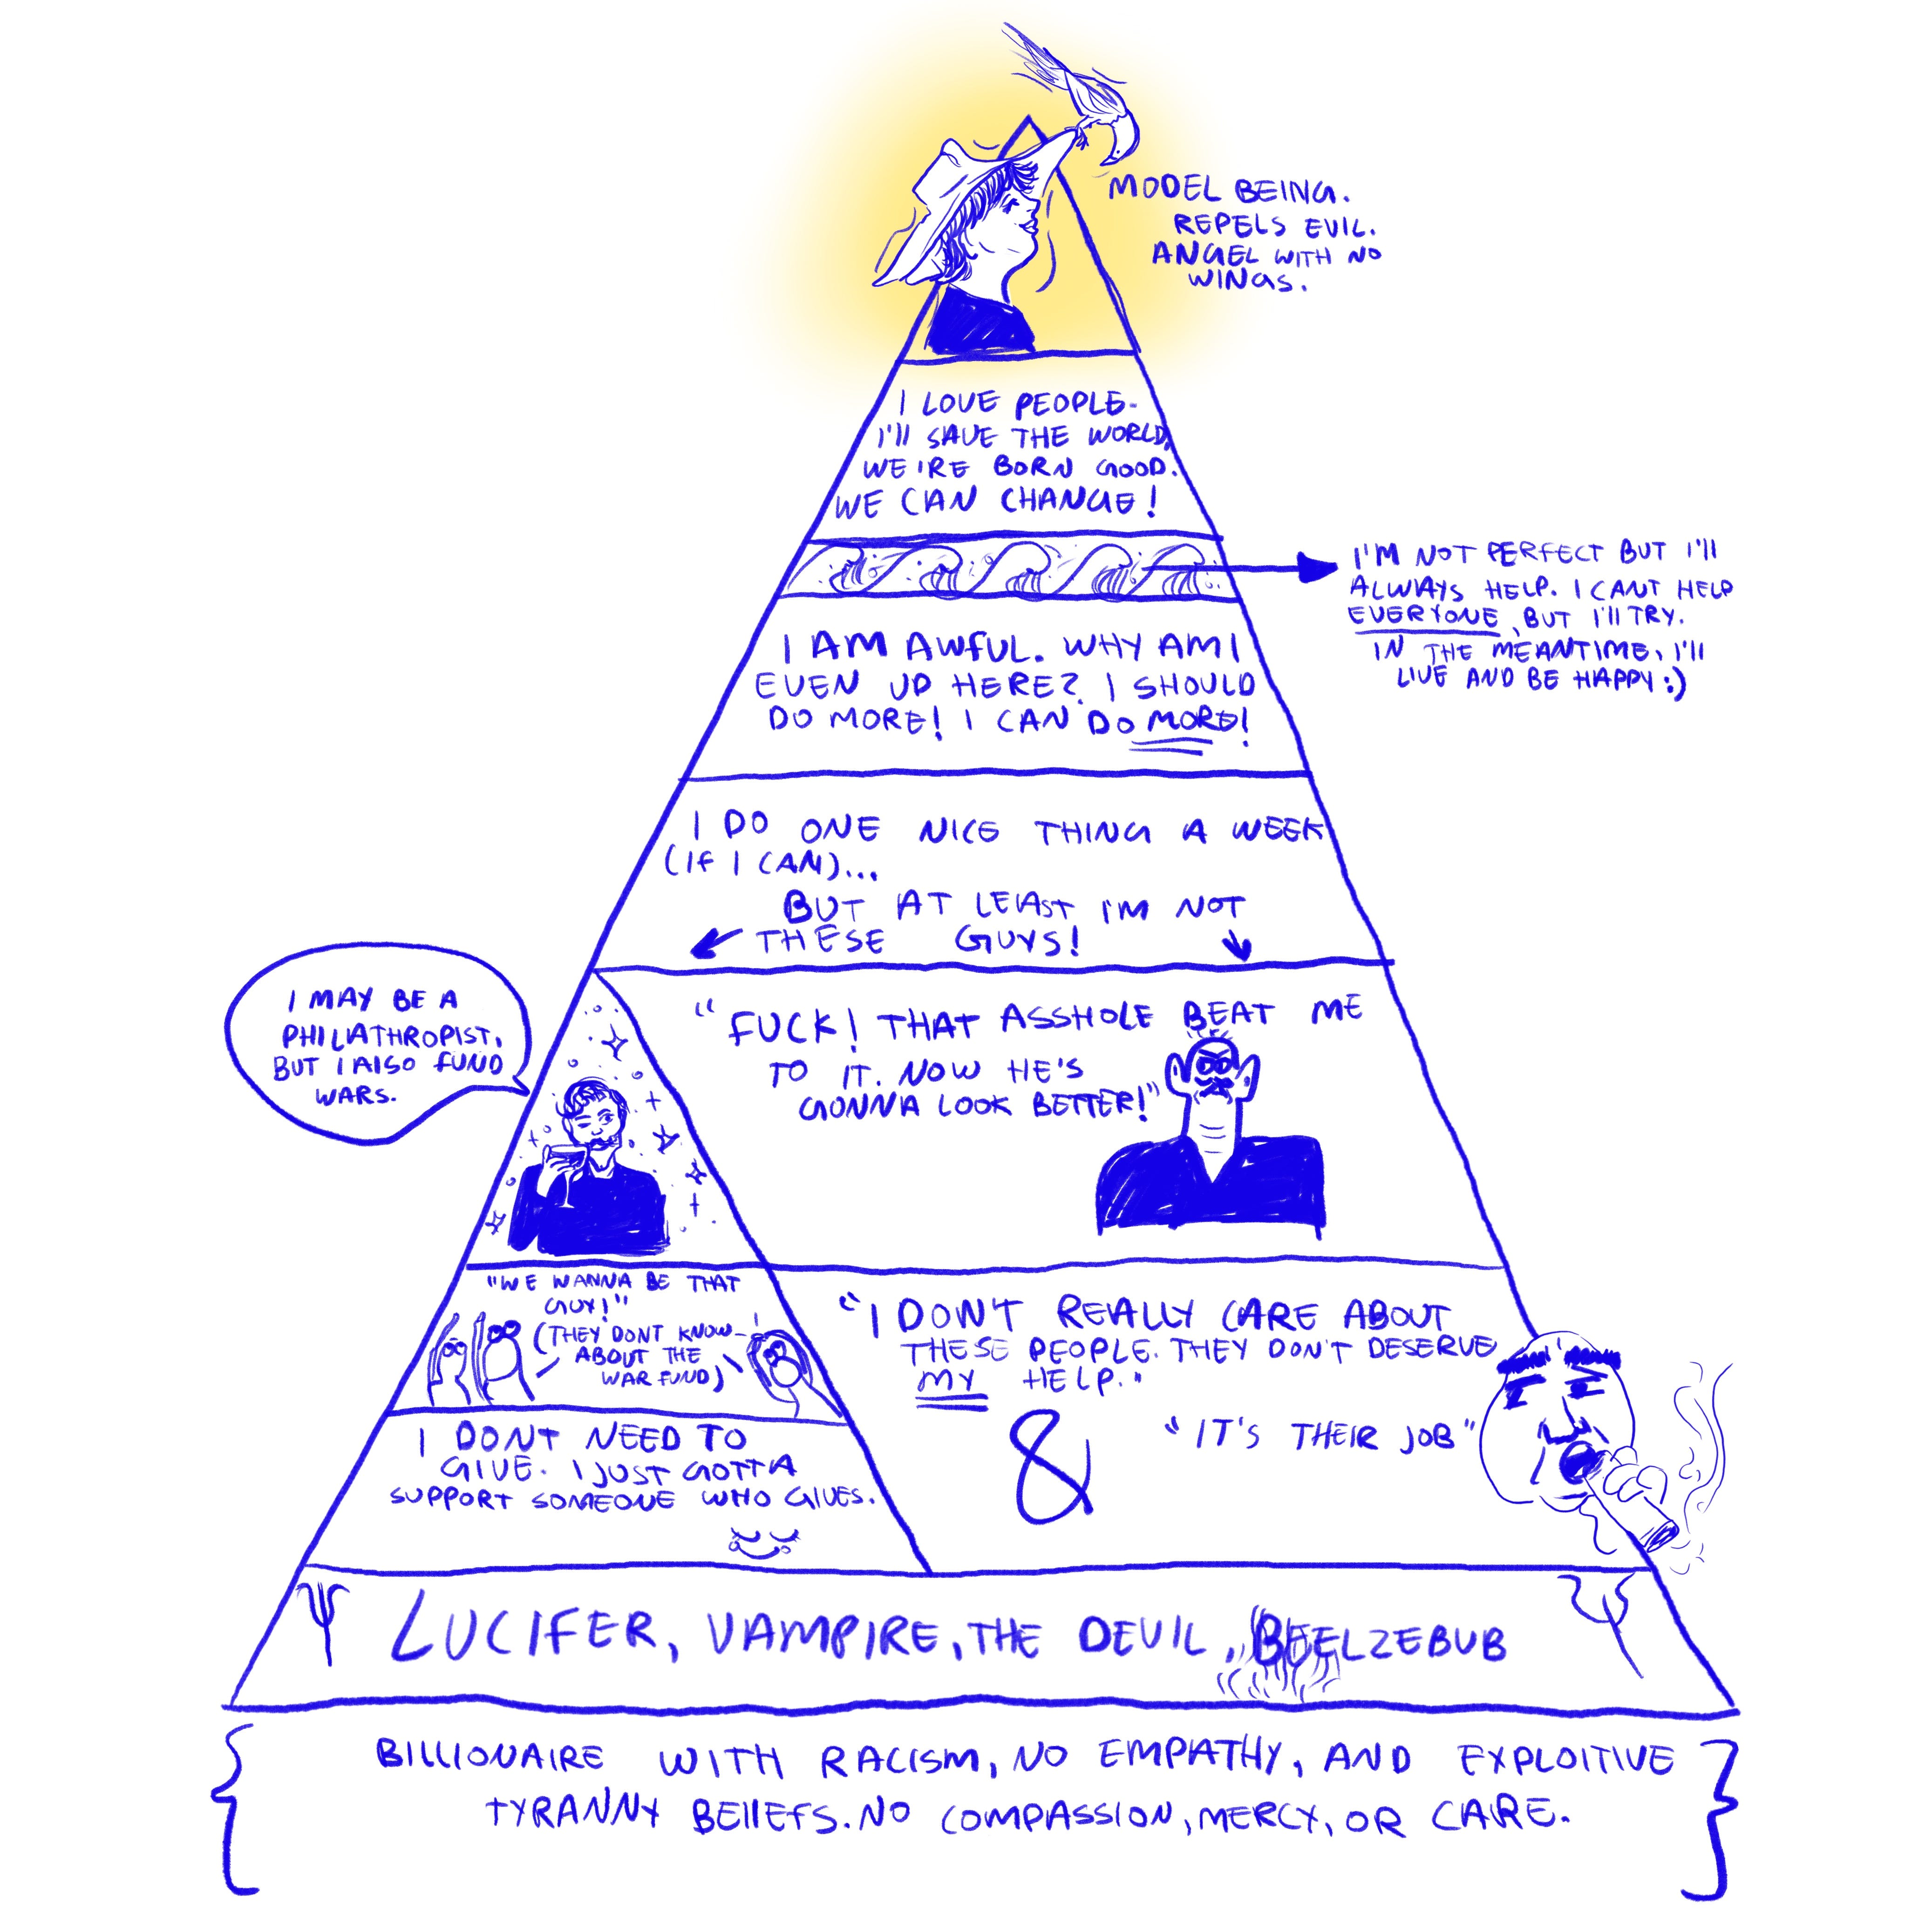 MODEL BEING.
REPELS EVIL.
ANGEL WITH NO
WINGS.
I LOVE PEOPLE-
I'll SAVE THE WORLD.
WE'RE BORN GOOD.
WE CAN CHANGE!
I'M NOT PERFECT BUT I'll
ALWAYS HELP. I CANT HELP
EVERYONE, BUT I'll TRY.
IN THE MEANTIME, I'll
LIVE AND BE HAPPY :)
I AM AWFUL. WHY AM I
EVEN UP HERE? I SHOULD
DO MORE! I CAN DO MORE!
I DO ONE NICE THING A WEEK
(If I CAN)...
BUT AT LEAST I'M NOT
THESE GUYS!
I MAY BE A
PHILATHROPIST,
BUT I AlSO FUND
WARS.
"FUCK! THAT ASSHOLE BEAT ME
TO IT. NOW HE'S
GONNA LOOK BETTER!"
"WE WANNA BE THAT
GUY!"
(THEY DONT KNOW
ABOUT THE
WAR FUND)
"I DON'T REALLY CARE ABOUT
THESE PEOPLE. THEY DON'T DESERVE
MY HELP."
&
"IT'S THEIR JOB"
I DONT NEED TO
GIVE. I JUST GOTTA
SUPPORT SOMEONE WHO GIVES.
LUCIFER, VAMPIRE, THE DEVIL, BEELZEBUB
BILLIONAIRE WITH RACISM, NO EMPATHY, AND EXPLOITIVE
TYRANNY BElIEFS. NO COMPASSION, MERCY, OR CARE.